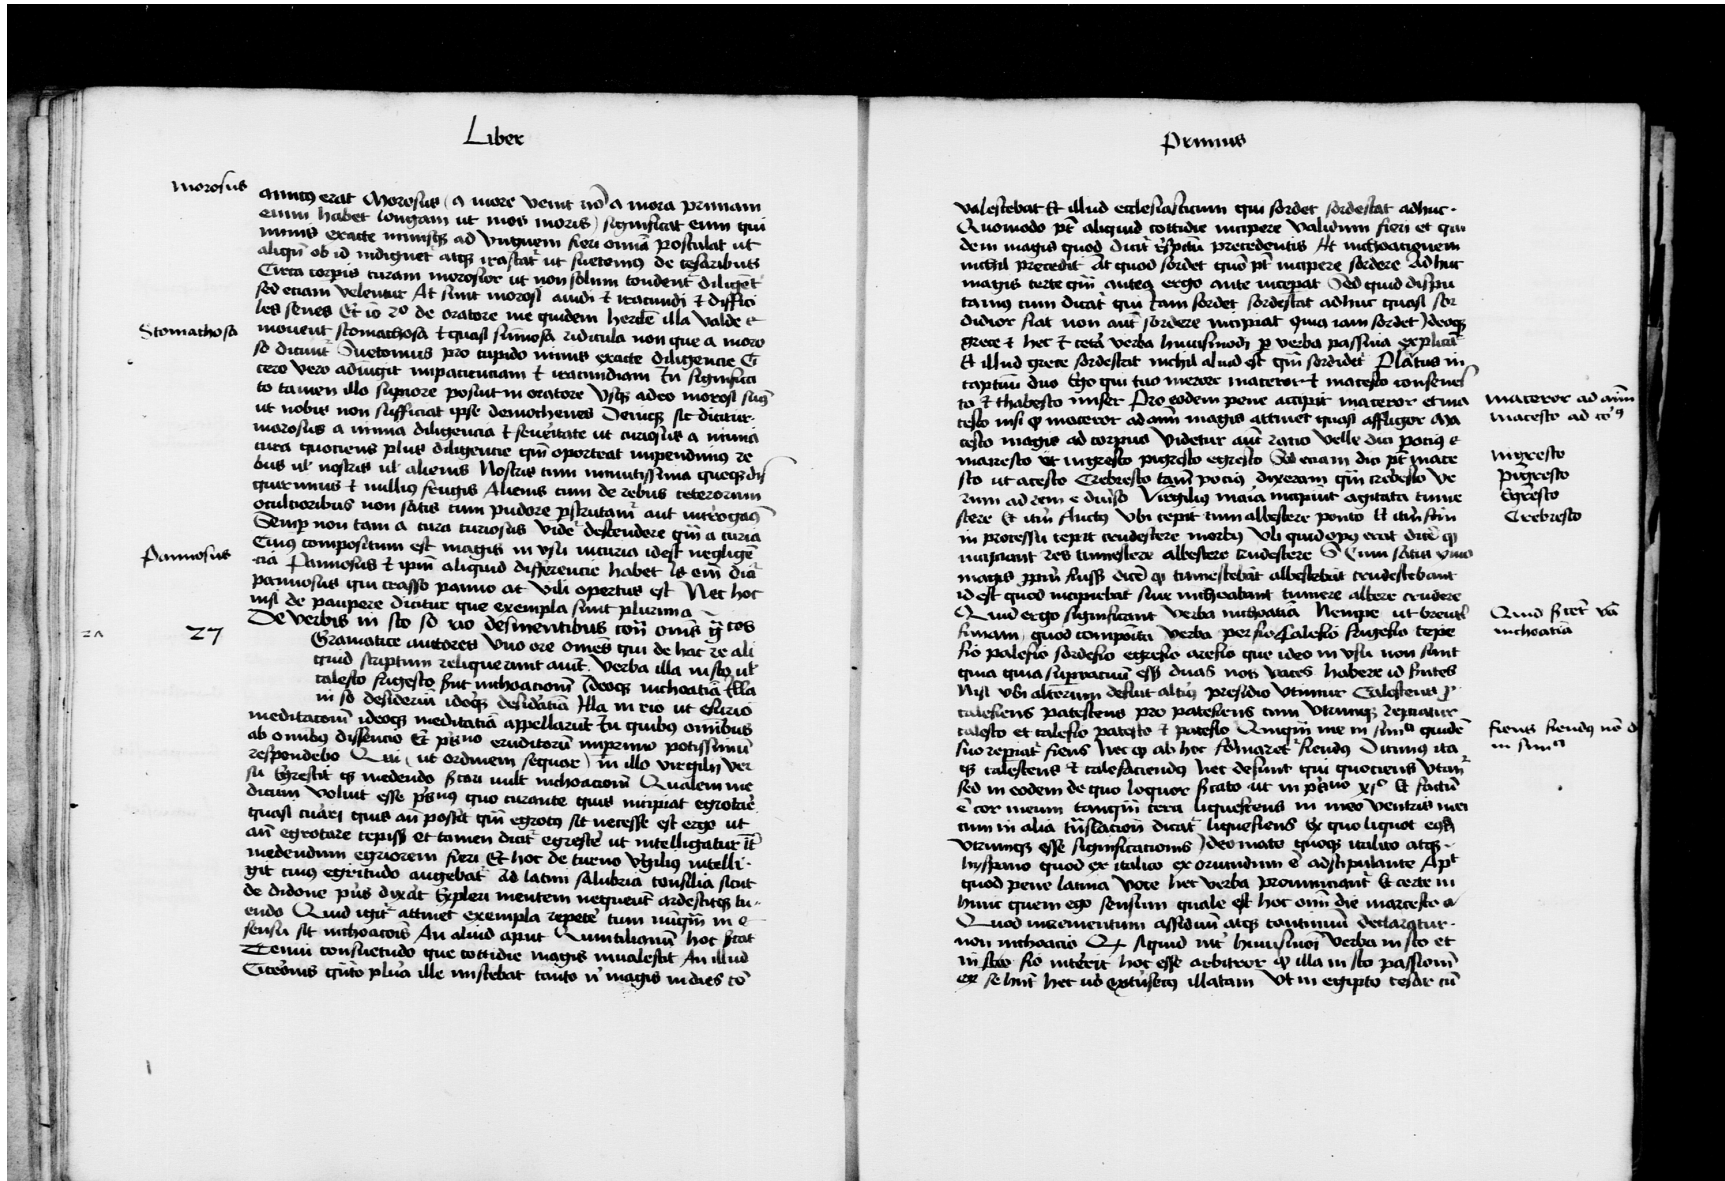 Liber
morosus
amicus erat Morosus (a more venit nō a mora primam
enim habet longam ut mos moris) significat enim qui
nimis exacte nimisq; ad unguem fieri omnia postulat ut
aliqn̄ ob id indignet᷑ atq; irascat᷑ ut suetonius de cesaribus
Circa corpis curam morosior ut non solum tonderet᷑ diligēt᷑
sed etiam velleretur At sunt morosi anxii et iracundi et diffici
les senes Et iō 2º de oratore me quidem hercle illa valde
Stomachosa
movent stomachosa et quasi submorosa ridicula non que a moro
so dicunt᷑ Suetonius pro cupido nimis exacte diligencie Ci
cero vero adiungit impacienciam et iracundiam In significa
to tamen illo superiore posuit in oratore Usq; adeo morosi sumꝰ
ut nobis non sufficiat ipse demosthenes Deniq; sic dicitur
morosus a nimia diligencia et severitate ut curiosus a nimia
cura quociens plus diligencie qm̄ oporteat impendimus re
bus ul̓ nostris ul̓ alienis Nostris cum minutissima queq; dis
quirimus et nullius frugis Alienis cum de rebus ceterorum
occultioribus non satis cum pudore pscrutam᷑ aut interrogamꝰ
Semp non tam a cura curiosus videt᷑ descendere qm̄ a curia
Cuius compositum est magis in usu incuria idest negligē
Pannosus
cia Pannosus et ipm̄ aliquid differencie habet Is em̄ dicit᷑
pannosus qui crasso panno ac vili opertus est Nec hoc
nisi de paupere dicitur que exempla sunt plurima
De verbis in sco so rio desinentibus contra omnes gr̄cos
27
Gramatice autores uno ore om̄es qui de hac re ali
quid scriptum reliquerunt aiunt verba illa in sco ul̓
calesco frugesco
in so desiderii ideoq; desideratiā Illa in rio ut esurio
meditacionē ideoq; meditatiā appellarunt In quibus omnibus
ab omnibus dissencio Et prisciano eruditorū imprimis potissimū
respondebo Qui (ut ordinem sequar) in illo virgilii ver
su Egrescit q; medendo uult inchoacionē Qualem me
dicum voluit esse prisciꝰ quo curante quis incipiat egrotare
quasi curari quis an̄ possit qm̄ egrotus sit necesse est ergo ut
an̄ egrotare cepisse et tamen dicit᷑ egrescere ut intelligatur
medendum egriorem fieri Et hoc de turno virgilius intelli
git cuius egritudo augebat᷑ ad latini salubria consilia sicut
de didone prius dixerat Expleri mentem nequit ardescitq; tu
endo Quid igit᷑ attinet exempla repetere cum nunqm̄ in e
sensu sit inchoacionis An aliud aput Quintilianum hoc
Tenuit consuetudo que cottidie magis invalescit An illud
Ciceronis quanto plura ille miscebat tanto magis indies cō
Primus
valescebat Et illud ecclesiasticum qui sordet sordescat adhuc
Quomodo pt̄ aliquid cottidie incipere validum fieri et qui
dem magis quod dicit᷑ respectu precedentis At inchoacionem
nichil precedit At quod sordet quō pt̄ incipere sordere Adhuc
magis certe qm̄ antea ergo ante inceperat Sed quid dispu
tamus cum dicat᷑ qui iam sordet sordescat adhuc quasi sor
didior fiat non aut̄ sordere incipiat quia iam sordet Ideoq;
grece et hec et cetera verba huiusmodi per verba passiva explicat᷑
Et illud grece sordescat nichil aliud est qm̄ sordidet᷑ Plautus in
captivis duo Ego qui tuo merore maceror et macesco consenes
co et thabesco miser Pro eodem pene accipit maceror et ma
maceror ad aīm
cesco nisi q̓ maceror ad aīm magis attinet quasi affligor Ma
macesco ad corꝰ
cesco magis ad corpus videtur aut̄ ratio velle dici pociꝰ
marcesco ut nigresco pigresco egresco Sed etiam dici pt̄ mace
nigresco
sco ut acesco Crebresco tam̄ pociꝰ dixeram qm̄ crebesco Ve
pigresco
rum ad rem e diverso Virgilius maria incipiunt agitata tume
Egresco
scere Et iterū fluctus ubi cepit cum albescere ponto Et iterū
Crebresco
in processu cepit crudescere morbus Ubi quid opus erat dicere q̓
incipiant res tumescere albescere crudescere Cum satis
magis ppriū fuisset dicere q̓ tumescebat albescebat crudescebant
idest quod incipiebat sive inchoabant tumere albere crudere
Quid ergo significant verba inchoatiā Nempe ut brevi
Quid vā
finiam, quod composita verba per fio Calefio frugefio tepe
inchoatiā
fio palefio sordefio egrefio arefio que ideo in usu non sunt
quia quia supervacuū esset duas nos voces habere
Nisi ubi alterum desinit altius presidio utimur Calescens p
calefiens patescens pro patefiens cum utrumq; reperiatur
calesco et calefio patesco et patefio Quamqm̄ me in quidē
fiens fiendꝰ nō
suo reperiat᷑ fiens nec q̓ ab hoc formaret᷑ fiendus Dicimus ita
q; calescens et calefaciendus hec desunt qui quociens utan᷑
sed in eodem de quo loquor ut in psalmo xxiº Et factū
ē cor meum tanquam cera liquescens in medio ventris mei
cum in alia translacionē dicat᷑ liquefiens Ex quo liquet
utrumq; esse significationis Ideo mato quoq; italico atq;
hyspano quod ex italico ex oriundum ē adstipulante
quod pene latina voce hec verba pronunciant᷑ Et certe in
hunc quem ego sensum quale est hoc omni die marcesco
Quod incrementum assiduū atq; continuū declaratur
non inchoacio Q̓ siquid int᷑ huiusmoi verba in sco et
in fio intererit hoc esse arbitror q̓ illa in sco passionē
ex se hn̄t hec extrinsecus illatam Ut in egipto cesar cū